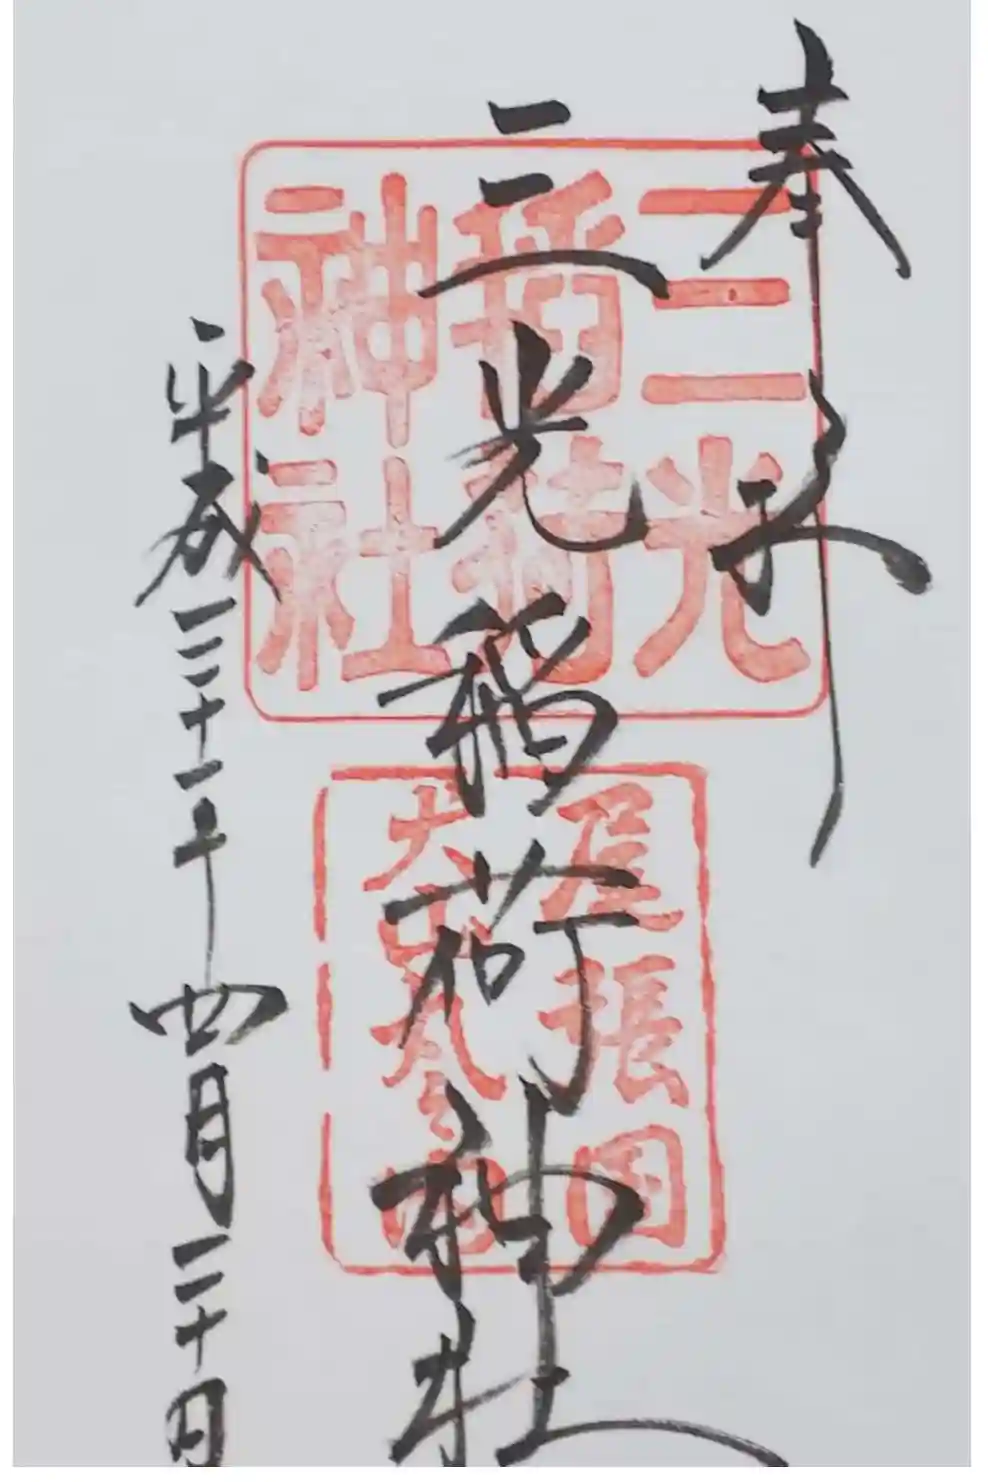 奉拝
三光稲荷神社
平成三十一年四月二十日
三光
稲荷
神社
尾張国
犬山